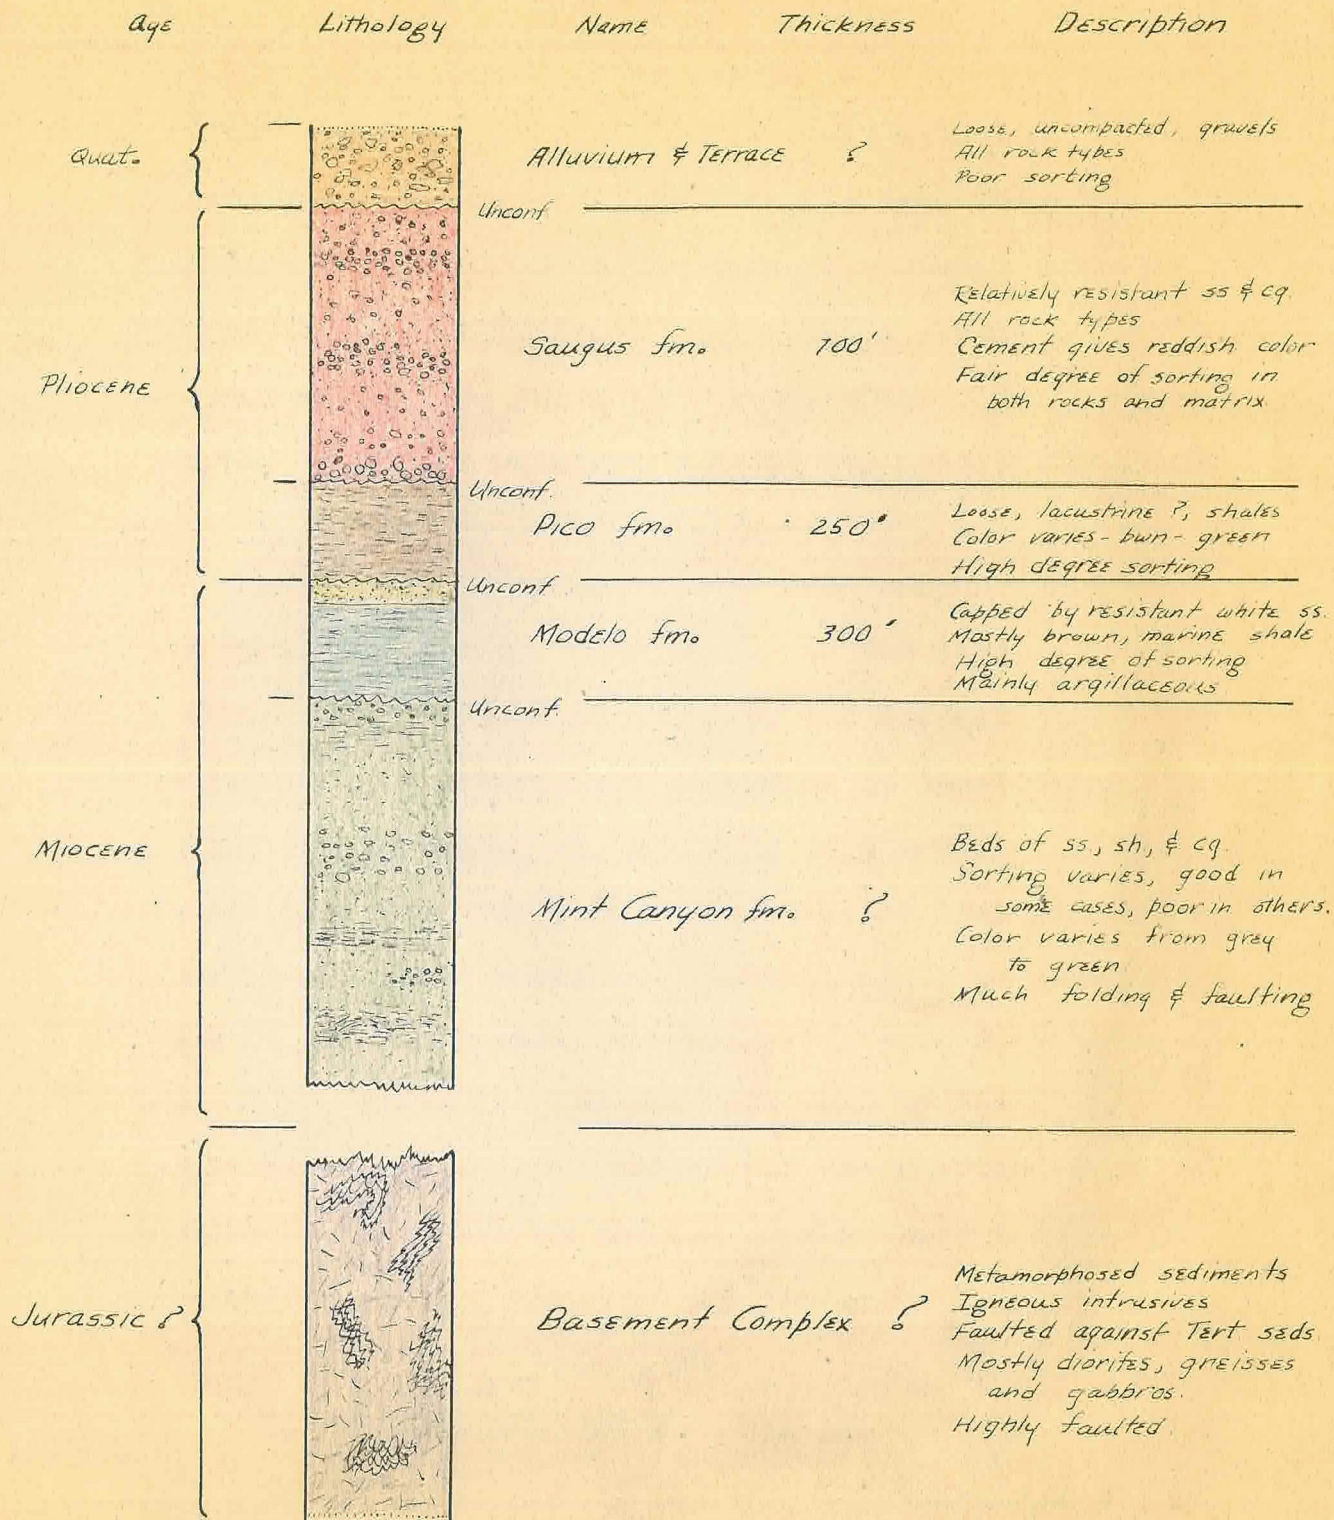 Age Lithology Name Thickness Description
Quat.
Alluvium & Terrace ?
Loose, uncompacted, gravels
All rock types
Poor sorting
Unconf.
Pliocene
Saugus fm. 700'
Relatively resistant ss & cg.
All rock types
Cement gives reddish color
Fair degree of sorting in
both rocks and matrix.
Unconf.
Pico fm. 250'
Loose, lacustrine ?, shales
Color varies - bwn - green
High degree sorting
Unconf
Modelo fm. 300'
Capped by resistant white ss.
Mostly brown, marine shale
High degree of sorting
Mainly argillaceous
Unconf.
Miocene
Mint Canyon fm. ?
Beds of ss., sh., & cg.
Sorting varies, good in
some cases, poor in others.
Color varies from grey
to green
Much folding & faulting
Jurassic ?
Basement Complex ?
Metamorphosed sediments
Igneous intrusives
Faulted against Tert seds.
Mostly diorites, gneisses
and gabbros.
Highly faulted.